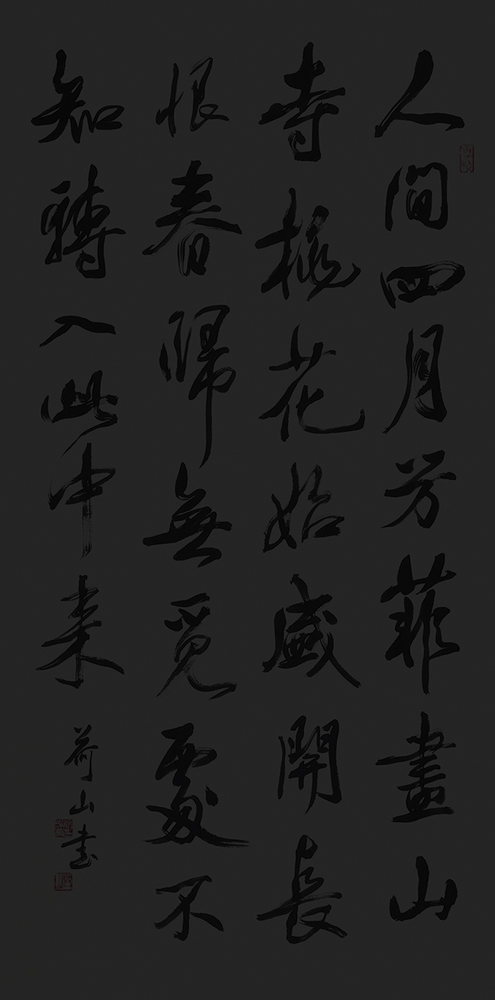 人間四月芳菲盡山
寺桃花始盛開長
恨春歸無覓處不
知轉入此中来
荷山書